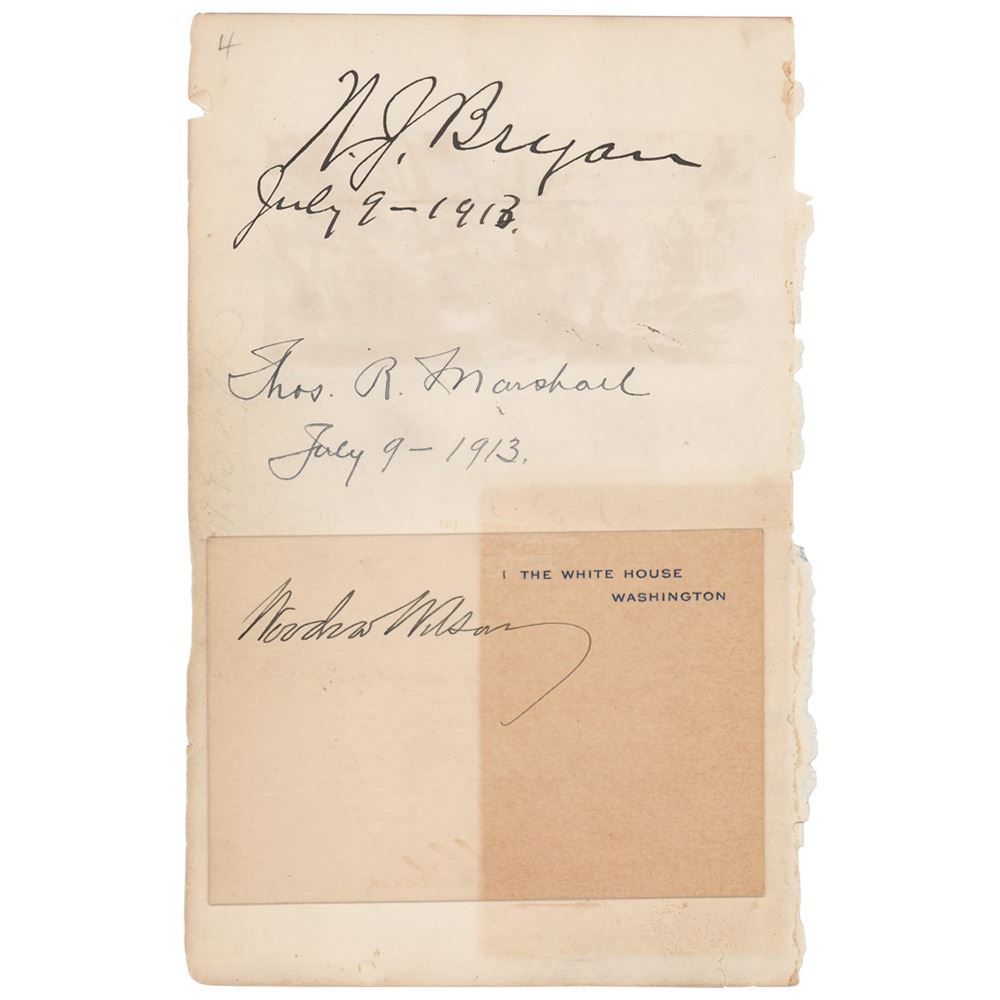 4
W. J. Bryan
July 9 - 1913.
Thos. R. Marshall
July 9 - 1913.
THE WHITE HOUSE
WASHINGTON
Woodrow Wilson